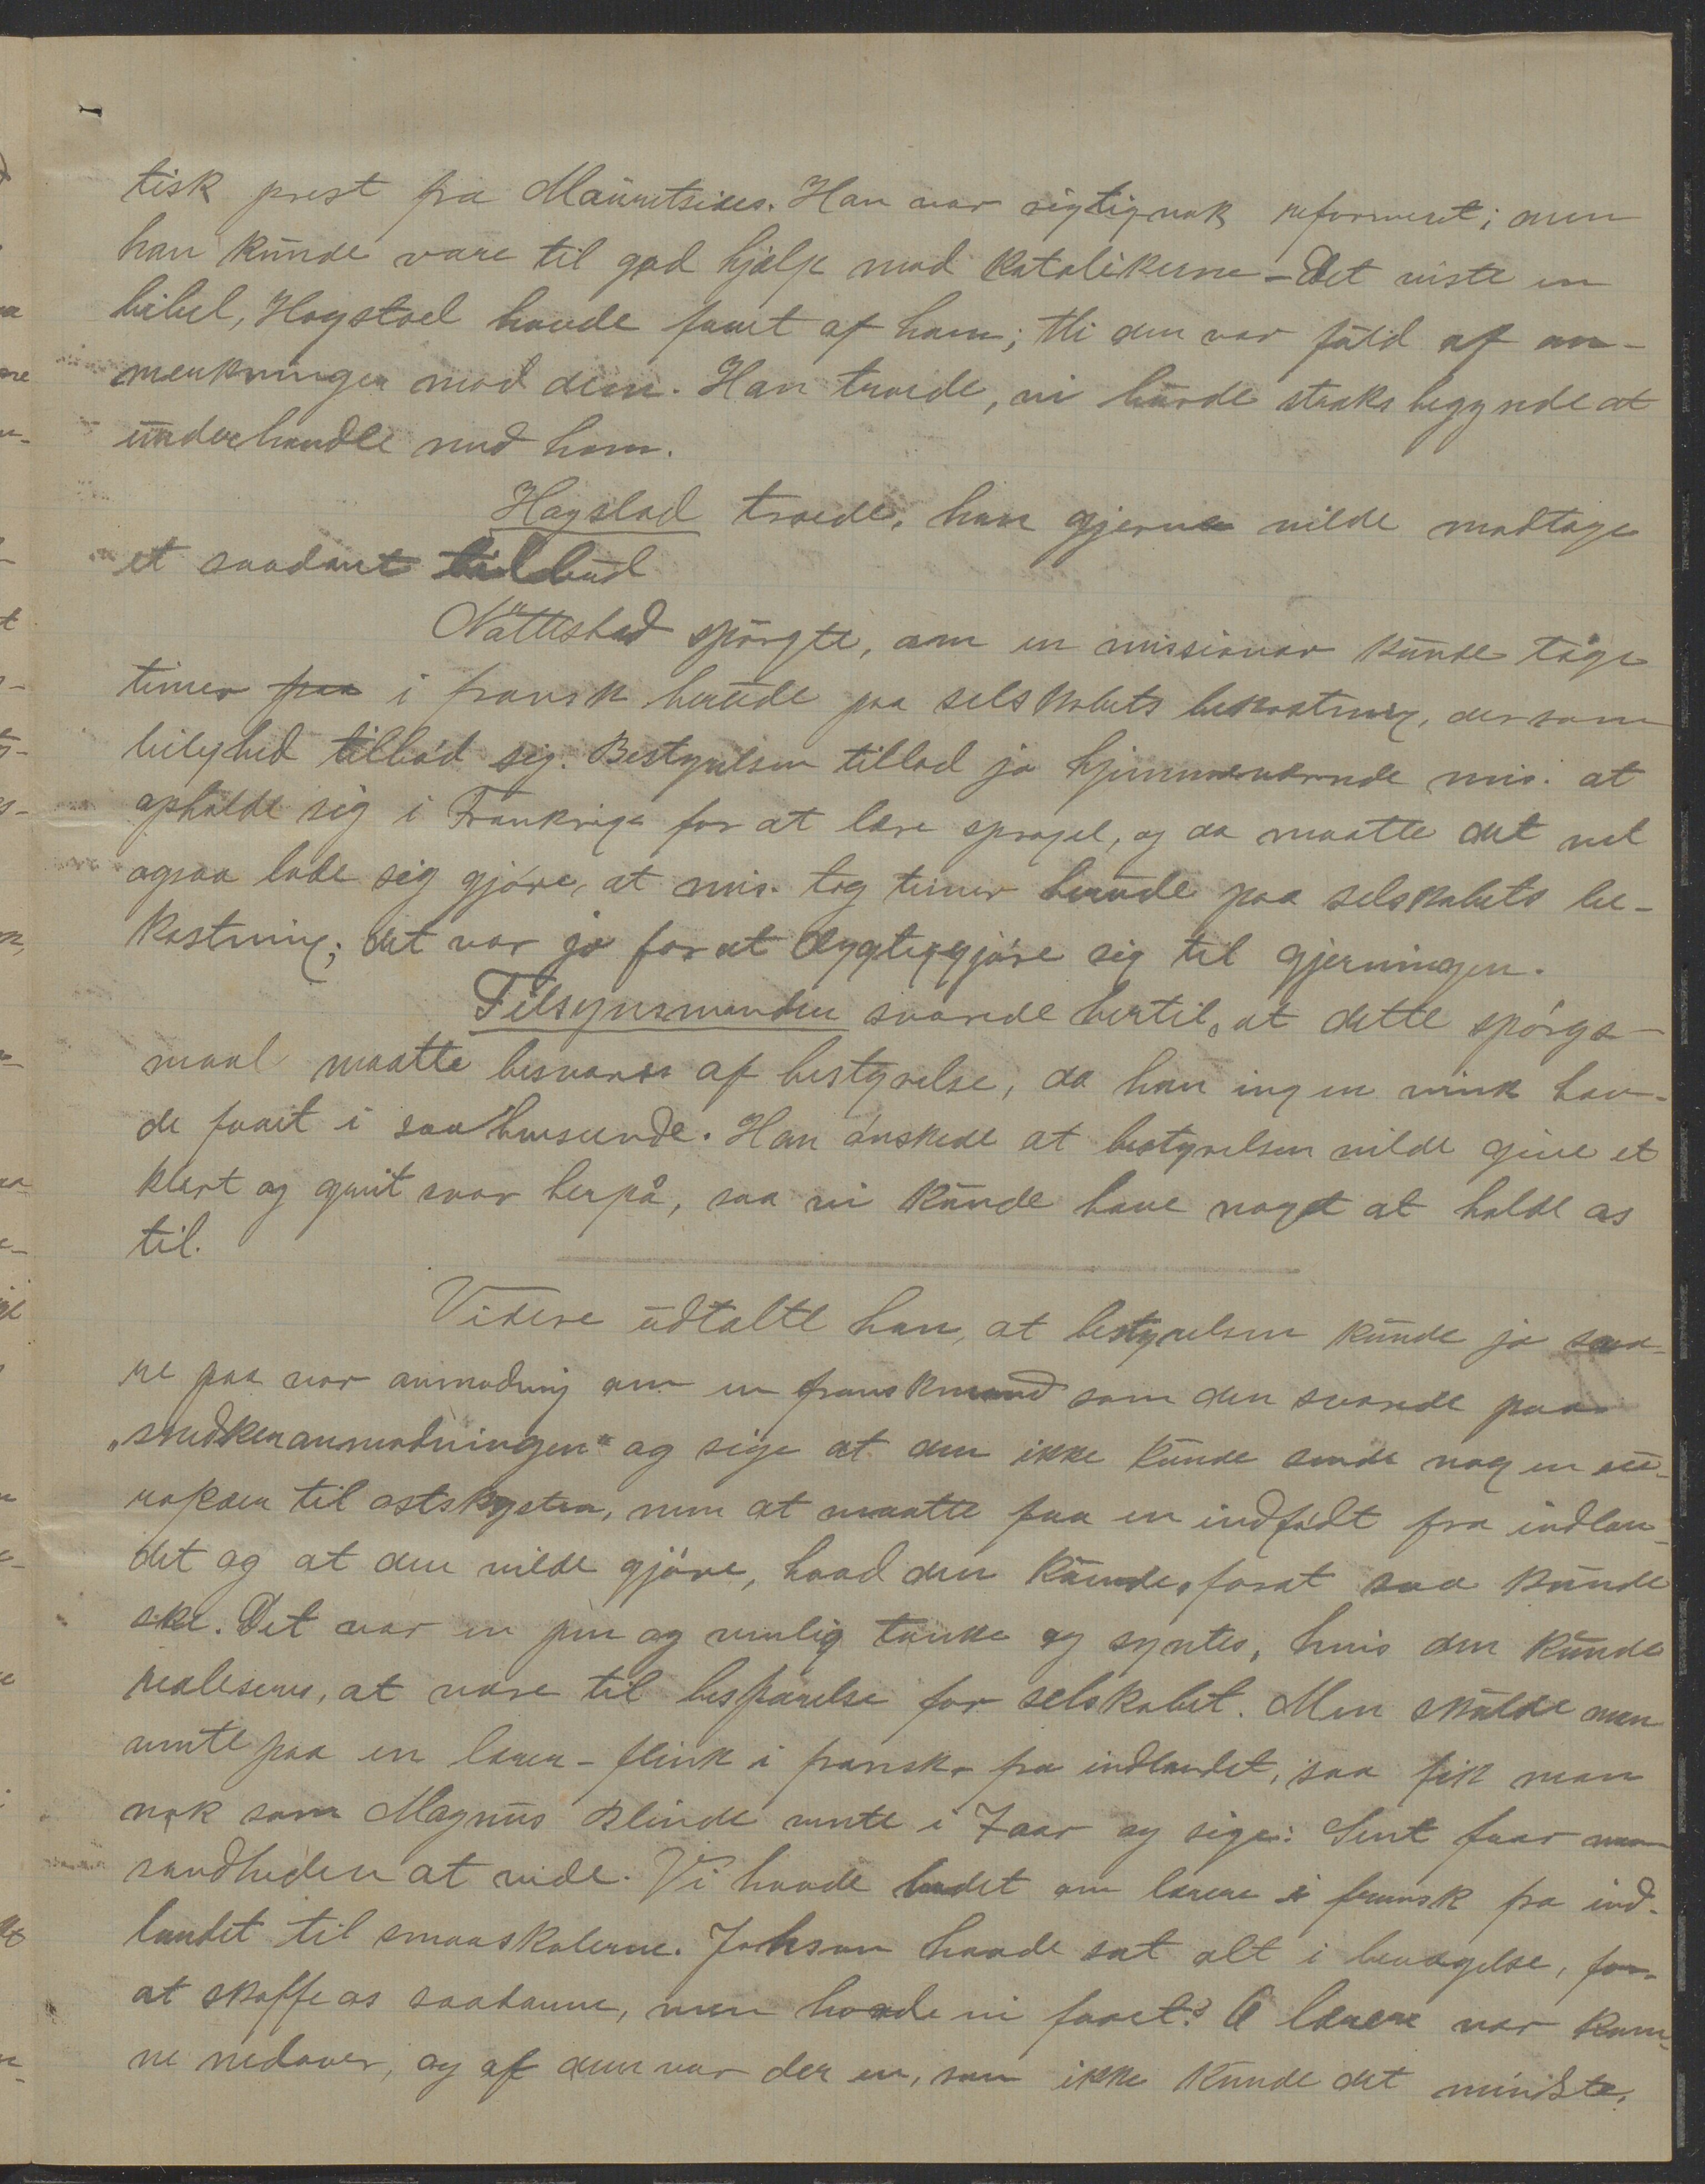 tisk prest fra Mauritsius. Han var rigtignok reformert; men
han kunde være til god hjælp mod katolikerne – Det viste en
bibel, Hogstad havde faaet af ham; thi den var fuld af an-
merkninger mod dem. Han troede, vi burde straks begynde at
underhandle med ham.
Hogstad troede, han gjerne vilde modtage
et saadant tilbud
Nättestad spørgte, om en missionær kunde tage
timer paa i fransk herude paa selskabets bekostning, dersom
leilighed tilbød sig. Bestyrelsen tillod jo hjemmeværende mis. at
opholde sig i Frankrige for at lære sproget, og da maatte det vel
ogsaa lade sig gjøre, at mis. tog timer herude paa selskabets be-
kostning; det var jo for at dygtiggjøre sig til gjerningen.
Tilsynsmanden svarede hertil, at dette spørgs-
maal maatte besvares af bestyrelse, da han ingen vink hav-
de faaet i saa henseende. Han ønskede at bestyrelsen vilde give et
klart og greit svar herpå, saa vi kunde have noget at holde os
til.
Videre udtalte han, at bestyrelsen kunde jo sva-
re paa vor anmodning om en franskmand som den svarede paa
„snedkeranmodningen" og sige at den ikke kunde sende nogen eu-
ropæer til østkysten, men at maatte faa en indfødt fra indlan-
det og at den vilde gjøre, hvad den kunde, forat saa kunde
ske. Det var en pen og rimelig tanke og syntes, hvis den kunde
realiseres, at være til besparelse for selskabet. Men skulde man
vente paa en lærer – flink i fransk – fra indlandet, saa fik man
nok som Magnus Blinde vente i 7 aar og sige: Sent faar man
sandheden at vide. Vi havde bedet om lærere i fransk fra ind-
landet til smaaskolerne. Johnson havde sat alt i bevægelse, for
at skaffe os saadanne, men hvad havde vi faaet? 6 lærere var kom-
ne nedover, og af dem var der en, som ikke kunde det mindste,